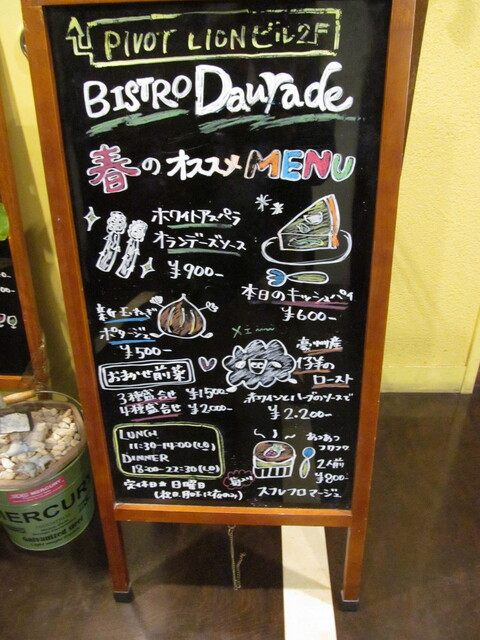 PIVOT LIONビル2F
BISTRO Daurade
春のオススメMENU
ホワイトアスパラ
オランデーズソース
¥900-
本日のキッシュパイ
¥600-
新玉ねぎ
ポタージュ
¥500-
メェ〜
豪州産
仔羊の
ロースト
赤ワインとハーブのソースで
¥2.200-
おまかせ前菜
3種盛合せ ¥1500-
4種盛合せ ¥2,000-
LUNCH
11:30-14:00(L.O)
DINNER
18:00-22:30(L.O)
定休日★日曜日
あつあつ
フワフワ
2人前
¥800-
スフレフロマージュ
MERCURY